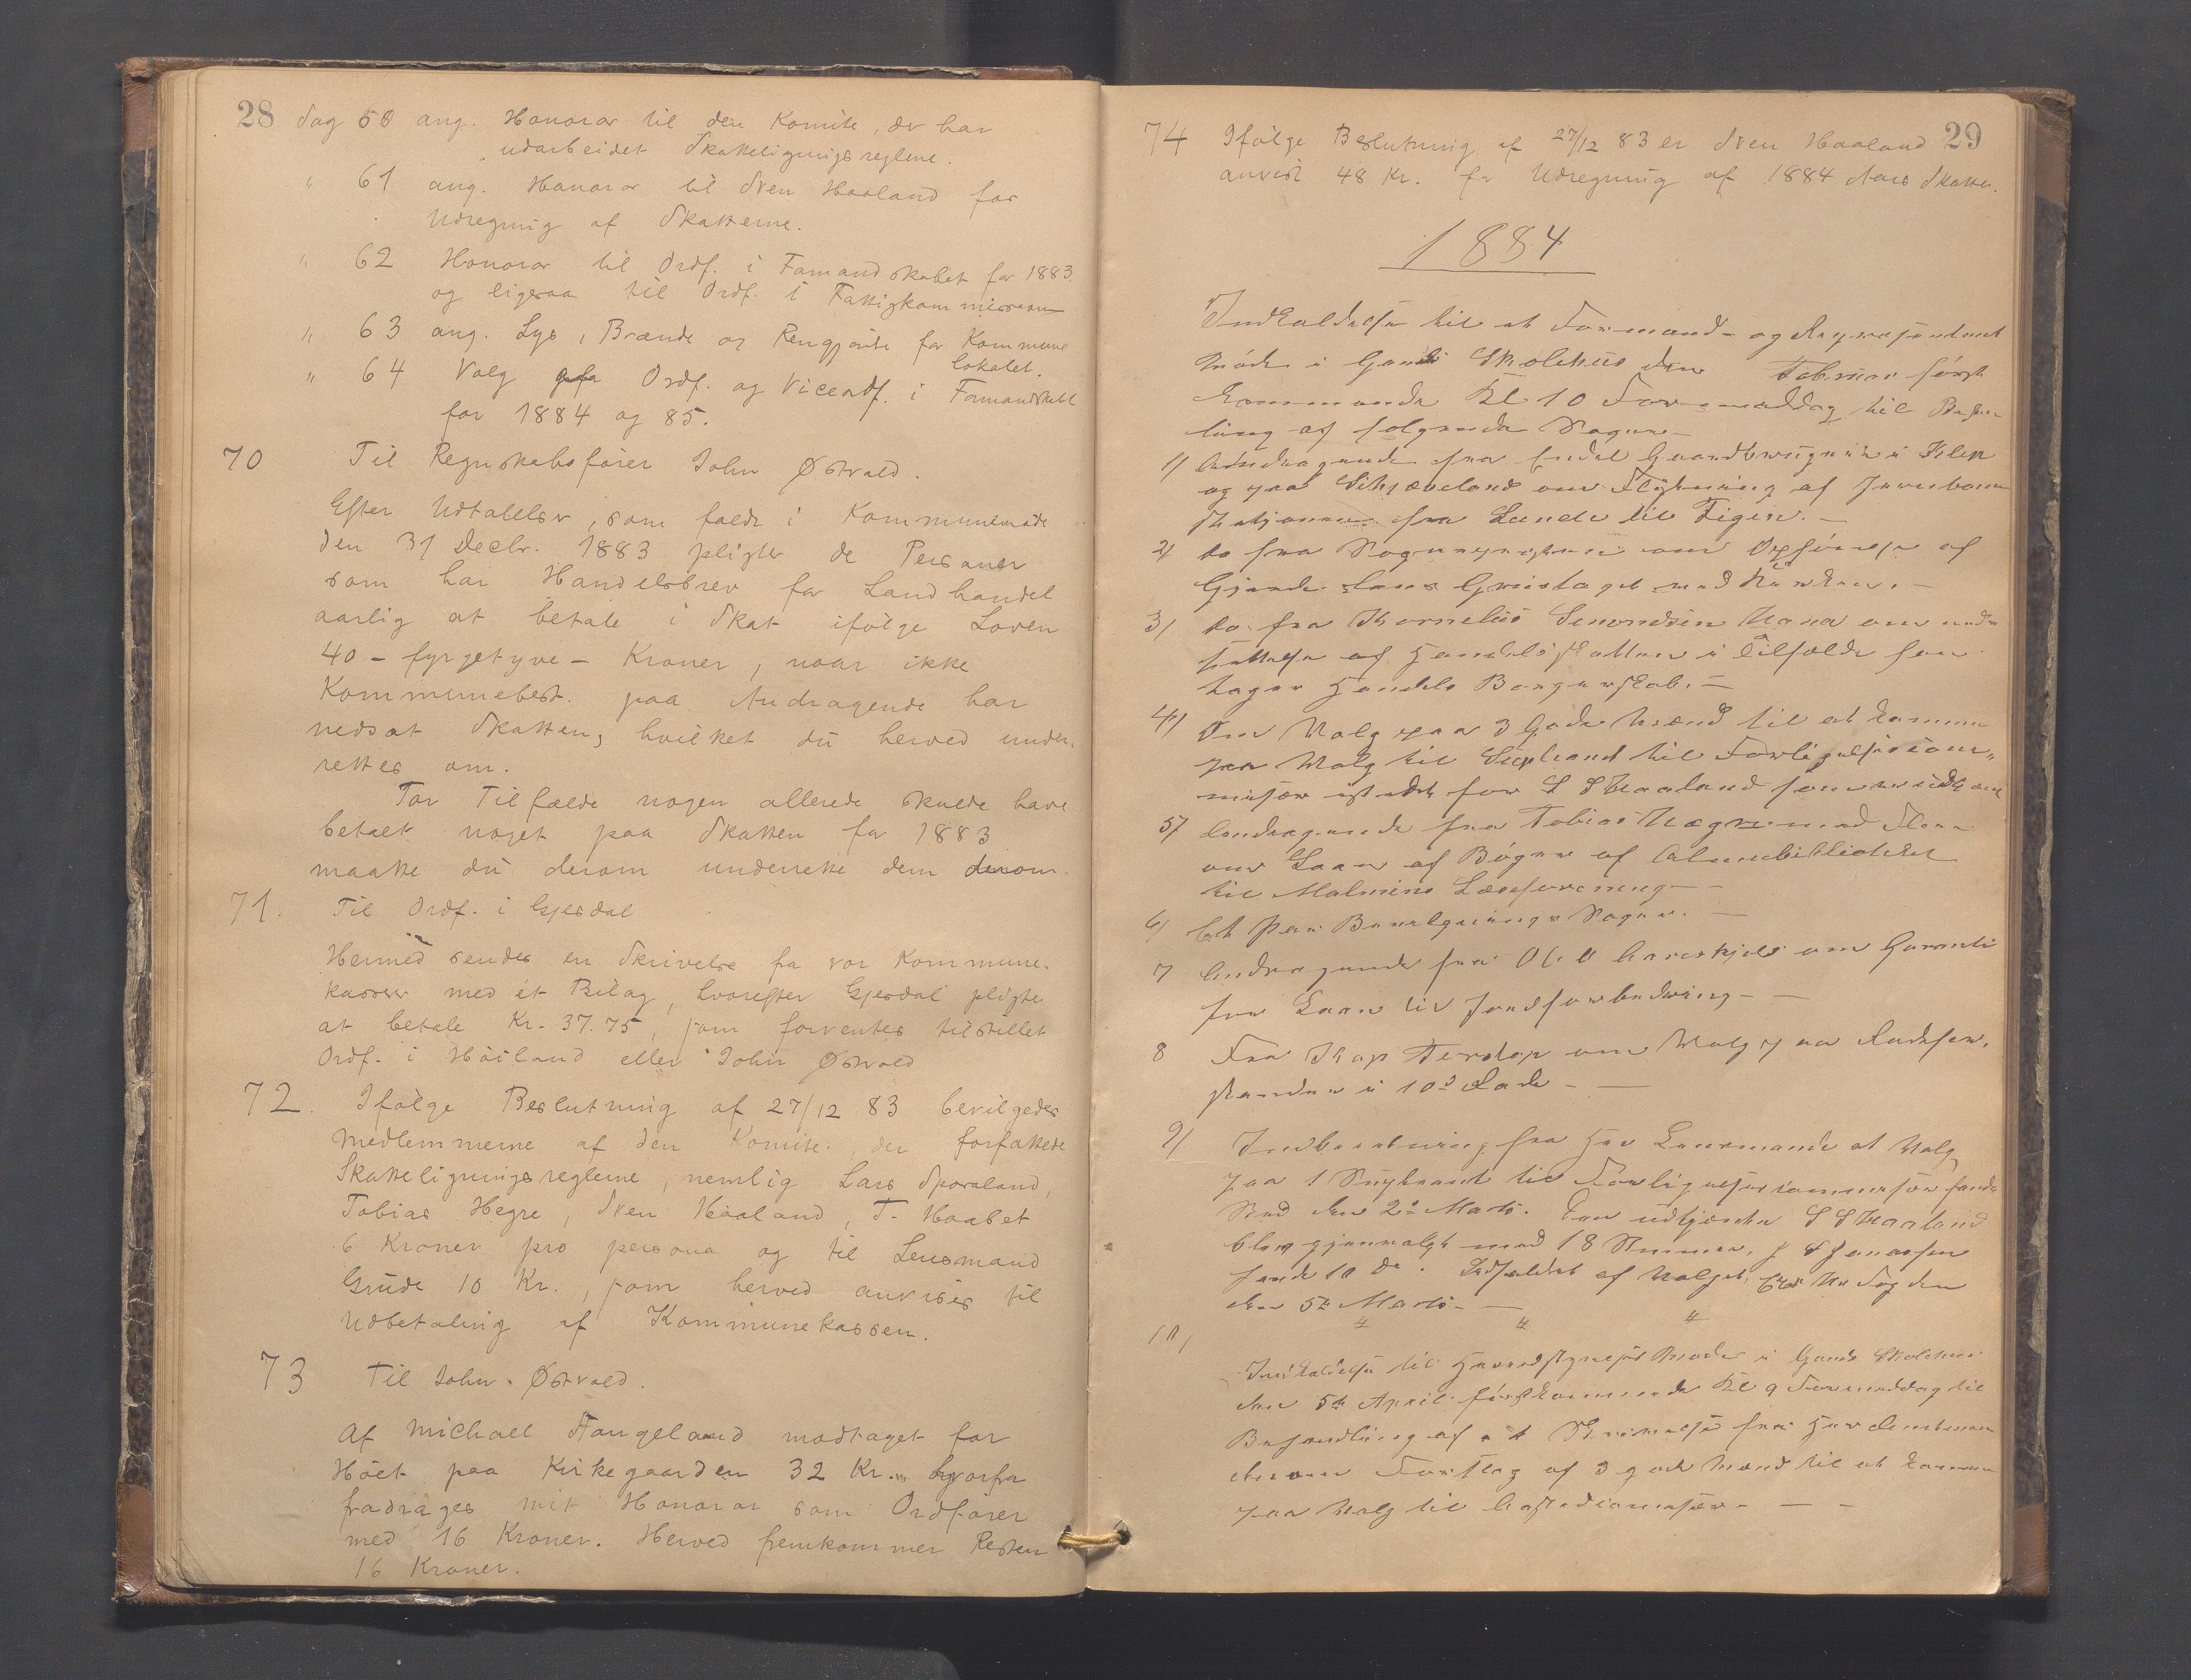 28 Sag 58 ang. Honorar til den Komite, der har
udarbeidet Skatteligningsreglene.
" 61 ang. Honorar til Sven Haaland for
Udregning af Skatterne.
" 62 Honorar til Ordf. i Formandskabet for 1883.
og ligesaa til Ordf. i Fattigkommissionen
" 63 ang. Lys, Brænde og Rengjørelse for Kommune
lokalet.
" 64 Valg paa Ordf. og Viceordf. i Formandskabet
for 1884 og 85.
70 Til Regnskabsfører John Østvold.
Efter Udtalelser, som faldt i Kommunemøde
den 31 Decbr. 1883 pligter de Personer
som har Handelsbrev for Landhandel
aarlig at betale i Skat ifølge Loven
40 - fyrgetyve - Kroner, naar ikke
Kommunebest. paa Andragende har
nedsat Skatten, hvilket du herved under-
rettes om.
For Tilfælde nogen allerede skulde have
betalt noget paa Skatten for 1883
maatte du derom underrette dem derom.
71. Til Ordf. i Gjesdal
Hermed sendes en Skrivelse fra vor Kommune-
kasser med et Bilag, hvorefter Gjesdal pligte
at betale Kr. 37.75, som forventes tilstillet
Ordf. i Höiland eller John Østvold
72. Ifølge Beslutning af 27/12 83 bevilgedes
Medlemmerne af den Komite der forfattede
Skatteligningsreglerne, nemlig Lars Sporaland,
Tobias Hegre, Sven Haaland, T. Haabet
6 Kroner pro persona og til Lensmand
Grude 10 Kr., som herved anvises til
Udbetaling af Kommunekassen.
73 Til John Østvold.
Af Michael Stangeland modtaget for
Höet paa Kirkegaarden 32 Kr. hvorfra
fradrages mit Honorar som Ordfører
med 16 Kroner. Herved fremkommer Resten
16 Kroner.
29
74 Ifølge Beslutning af 27/12 83 er Sven Haaland
anvist 48 Kr. for Udregning af 1884 Aars Skatter.
1884
Indkaldelse til et Formand- og Repræsentant
Møde i Gand Skolehus den Februar först
kommende Kl 10 Formiddag til Behand
ling af følgende Sager
1/ Andragende fra Endel Gaardbrugere i Klep
og paa Skjæveland om Flytning af Jernbane
Stationen fra Lunde til Figen. -
2/ do fra Sognepresten om Opførelse af
Gjærde langs Grustaget ved Kirken. -
3/ do. fra Kornelius Simonsen Hana om ned-
settelse af Handelsskatten i Tilfælde han
tager Handels Borgerskab. -
4/ Om Valg paa 3 Gode Mænd til at komme
paa Valg til Supleant til Forligelseskom-
misær istedet for S S Haaland som er udtraadt
5/ Andragende fra Tobias Hægre med Flere
om Laan af Bøger af Almuebibliotheket
til Malmins Læseforening - -
6/ Et Par Bevilgnings Sager. -
7 Andragende fra Ole O Aareskjold om Garanti
for Laan til Jordforbedring - -
8 Fra Kap Terslop om Valg paa Rodefor-
standere i 10de Rode - -
9/ Indberetning fra Hr Lensmanden at Valg
paa 1 Suplant til Forligelseskommisær fandt
Sted den 2de Marts. Den udtjente S S Haaland
blev gjenvalgt med 18 Stemmer. J S Jonassen
havde 10 do. Udfaldet af Valget Hr Fogden
den 5te Marts -
10/
Indkaldelse til Herredstyrelses Møde i Gands Skolehus
den 5te April førstkommende Kl 9 Formiddag til
Behandling af et Skrivelse fra Hr Amtmanden
om Forslag af 3 gode Mænd til at komme
paa Valg til - -